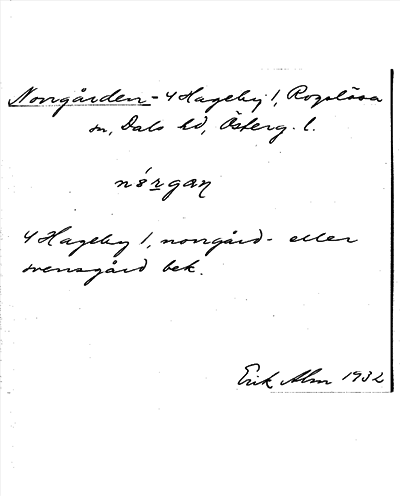 Norrgården - 4 Hageby 1, Rogslösa
sn, Dals hd, Österg. l.
nórgaɳ
4 Hageby 1, norrgård- eller
svensgård bek.
Erik Alm 1932